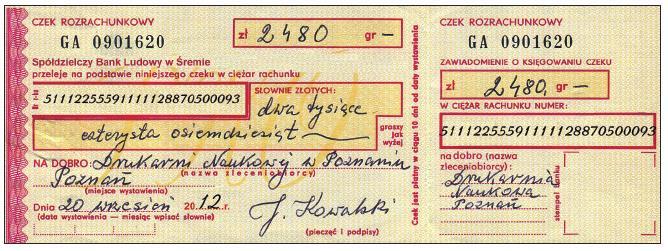 CZEK ROZRACHUNKOWY
GA 0901620
zł 2480 gr –
Spółdzielczy Bank Ludowy w Śremie
przeleje na podstawie niniejszego czeku w ciężar rachunku
51112255591111128870500093
SŁOWNIE ZŁOTYCH:
dwa tysiące
czterysta osiemdziesiąt
groszy jak wyżej
NA DOBRO: Drukarni Naukowej w Poznaniu
(nazwa zleceniobiorcy)
Poznań
(miejsce wystawienia)
Dnia 20 wrzesień 2012 r.
(data wystawienia – miesiąc wpisać słownie)
J. Kowalski
(pieczęć i podpisy)
Czek jest płatny w ciągu 10 dni od daty wystawienia
CZEK ROZRACHUNKOWY
GA 0901620
ZAWIADOMIENIE O KSIĘGOWANIU CZEKU
zł 2480, gr –
W CIĘŻAR RACHUNKU NUMER:
51112255591111128870500093
na dobro: (nazwa
zleceniobiorcy):
Drukarnia
Naukowa
Poznań
stempel banku